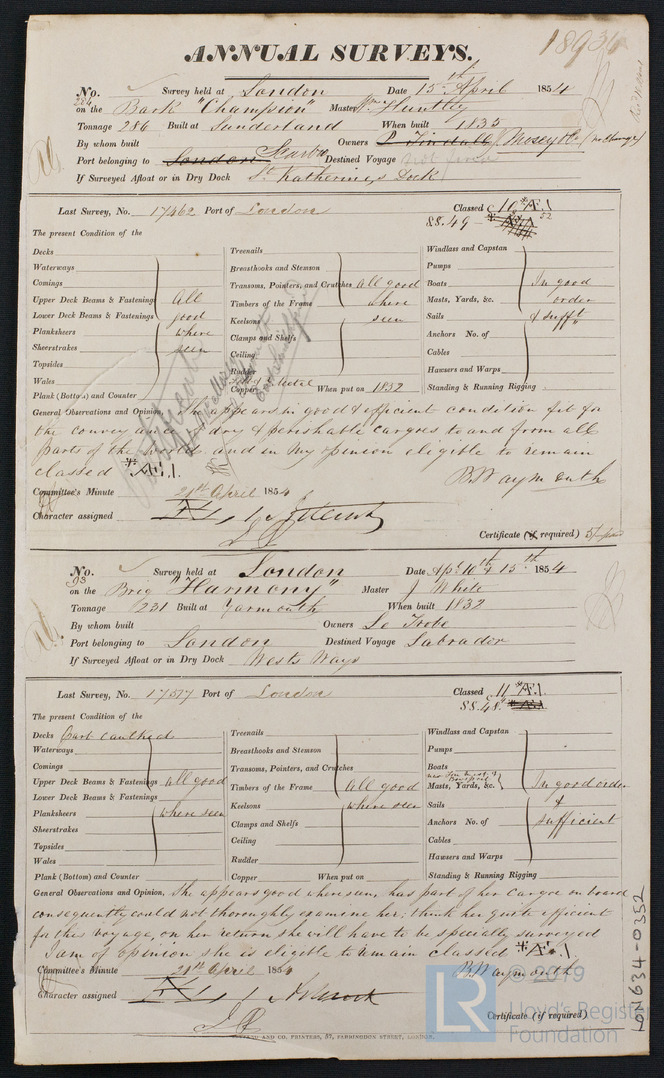 18936
ANNUAL SURVEYS.
No. 284 Survey held at London Date 15th April 1854
on the Bark "Champion" Master Wm Huntley
Tonnage 286 Built at Sunderland When built 1835
By whom built Owners Tindall / Mosey & Co. (no change)
Port belonging to London Scarbro Destined Voyage not fixed
If Surveyed Afloat or in Dry Dock St Katherines Dock
Last Survey, No. 17462 Port of London Classed 10 *Æ.1
88.49 52
The present Condition of the
Decks
Waterways
Comings
Upper Deck Beams & Fastenings All
Lower Deck Beams & Fastenings good
Planksheers where
Sheerstrakes seen
Topsides
Wales
Plank (Bottom) and Counter
Treenails
Breasthooks and Stemson
Transoms, Pointers, and Crutches All good
Timbers of the Frame where
Keelsons seen
Clamps and Shelfs
Ceiling
Rudder
Copper Metal When put on 1852
Windlass and Capstan
Pumps
Boats In good
Masts, Yards, &c. order
Sails & sufft
Anchors No. of
Cables
Hawsers and Warps
Standing & Running Rigging
General Observations and Opinion, She appears in good & efficient condition fit for
the conveyance of dry & perishable cargoes to and from all
parts of the world and in my opinion eligible to remain
classed *Æ.1.
B Waymouth
Committee's Minute 21st April 1854
Character assigned
Certificate (if required)
No. 93 Survey held at London Date Apl 10th & 15th 1854
on the Brig "Harmony" Master J White
Tonnage 231 Built at Yarmouth When built 1832
By whom built Owners La Trobe
Port belonging to London Destined Voyage Labrador
If Surveyed Afloat or in Dry Dock Wests Ways
Last Survey, No. 17577 Port of London Classed 11 *Æ.1.
88.48
The present Condition of the
Decks Part caulked
Waterways
Comings
Upper Deck Beams & Fastenings All good
Lower Deck Beams & Fastenings
Planksheers where seen
Sheerstrakes
Topsides
Wales
Plank (Bottom) and Counter
Treenails
Breasthooks and Stemson
Transoms, Pointers, and Crutches
Timbers of the Frame All good
Keelsons where seen
Clamps and Shelfs
Ceiling
Rudder
Copper When put on
Windlass and Capstan
Pumps
Boats
new Fore Mast & Bowsprit
Masts, Yards, &c. In good order
Sails &
Anchors No. of sufficient
Cables
Hawsers and Warps
Standing & Running Rigging
General Observations and Opinion, She appears good where seen, has part of her Cargoe on board
consequently could not thoroughly examine her; think her quite efficient
for the voyage, on her return she will have to be specially surveyed
I am of opinion she is eligible to remain classed *Æ.1
B Waymouth
Committee's Minute 21st April 1854
Character assigned
Certificate (if required)
AND CO. PRINTERS, 57, FARRINGDON STREET, LONDON.
LON634-0352
LR
© 2019
Lloyd's Register
Foundation